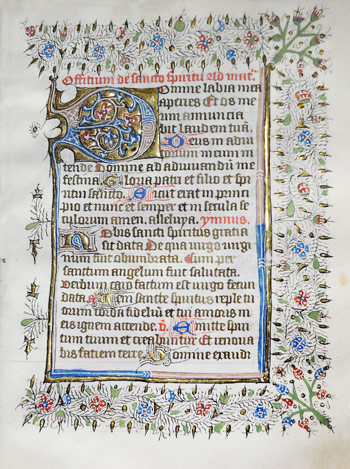 Offitium de sancto spiritu Ad mat.
Domine labia mea
aperies Et os meum
annuncia
bit laudem tuã.
Deus in adiu
torium meum in
tende Domine ad adiuvandũ me
festina. Gloria patri et filio et spi
ritui sancto. Sicut erat in princi
pio et nunc et semper et in secula se
culorum amen, alleluya. ymnus.
Nobis sancti spiritus gratia
sit data De qua virgo virgi
num fuit obumbrata. Cum per
sanctum angelum fuit salutata.
Verbum caro factum est virgo fecun
data Veni sancte spiritus reple tu
orum corda fideliũ et tui amoris in
eis ignem accende. v. Emitte spiri
tum tuum et creabuntur Et renova
bis faciem terre Domine exaudi